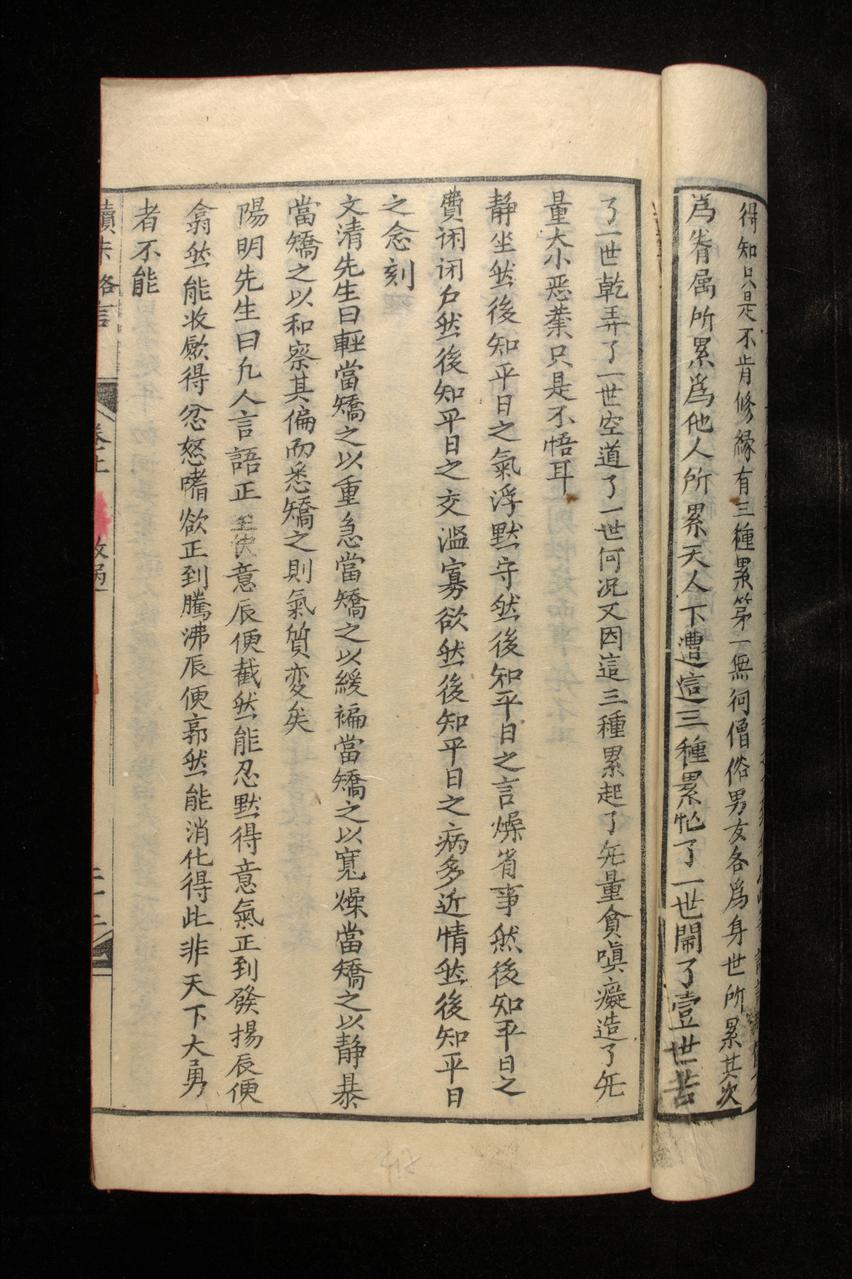 得知只是不肯修緣有三種累第一無何僧俗男女各為身世所累其次
為眷属所累為他人所累天人下遭這三種累忙了一世鬧了壹世苦
了一世乾弄了一世空道了一世何况又因這三種累起了无量貪嗔癡造了无
量大小惡葉只是不悟耳
静坐然後知平日之氣浮默守然後知平日之言燥省事然後知平日之
費闲闭户然後知平日之交滥寡欲然後知平日之病多近情然後知平日
之念刻
文清先生曰輕當矯之以重急當矯之以緩褊當矯之以寬燥當矯之以静暴
當矯之以和察其偏而悉矯之則氣質变矣
陽明先生曰凢人言語正到快意辰便截然能忍默得意氣正到發揚辰便
翕然能收歛得忿怒嗜欲正到騰沸辰便廓然能消化得此非天下大勇
者不能
格言
卷上
改過